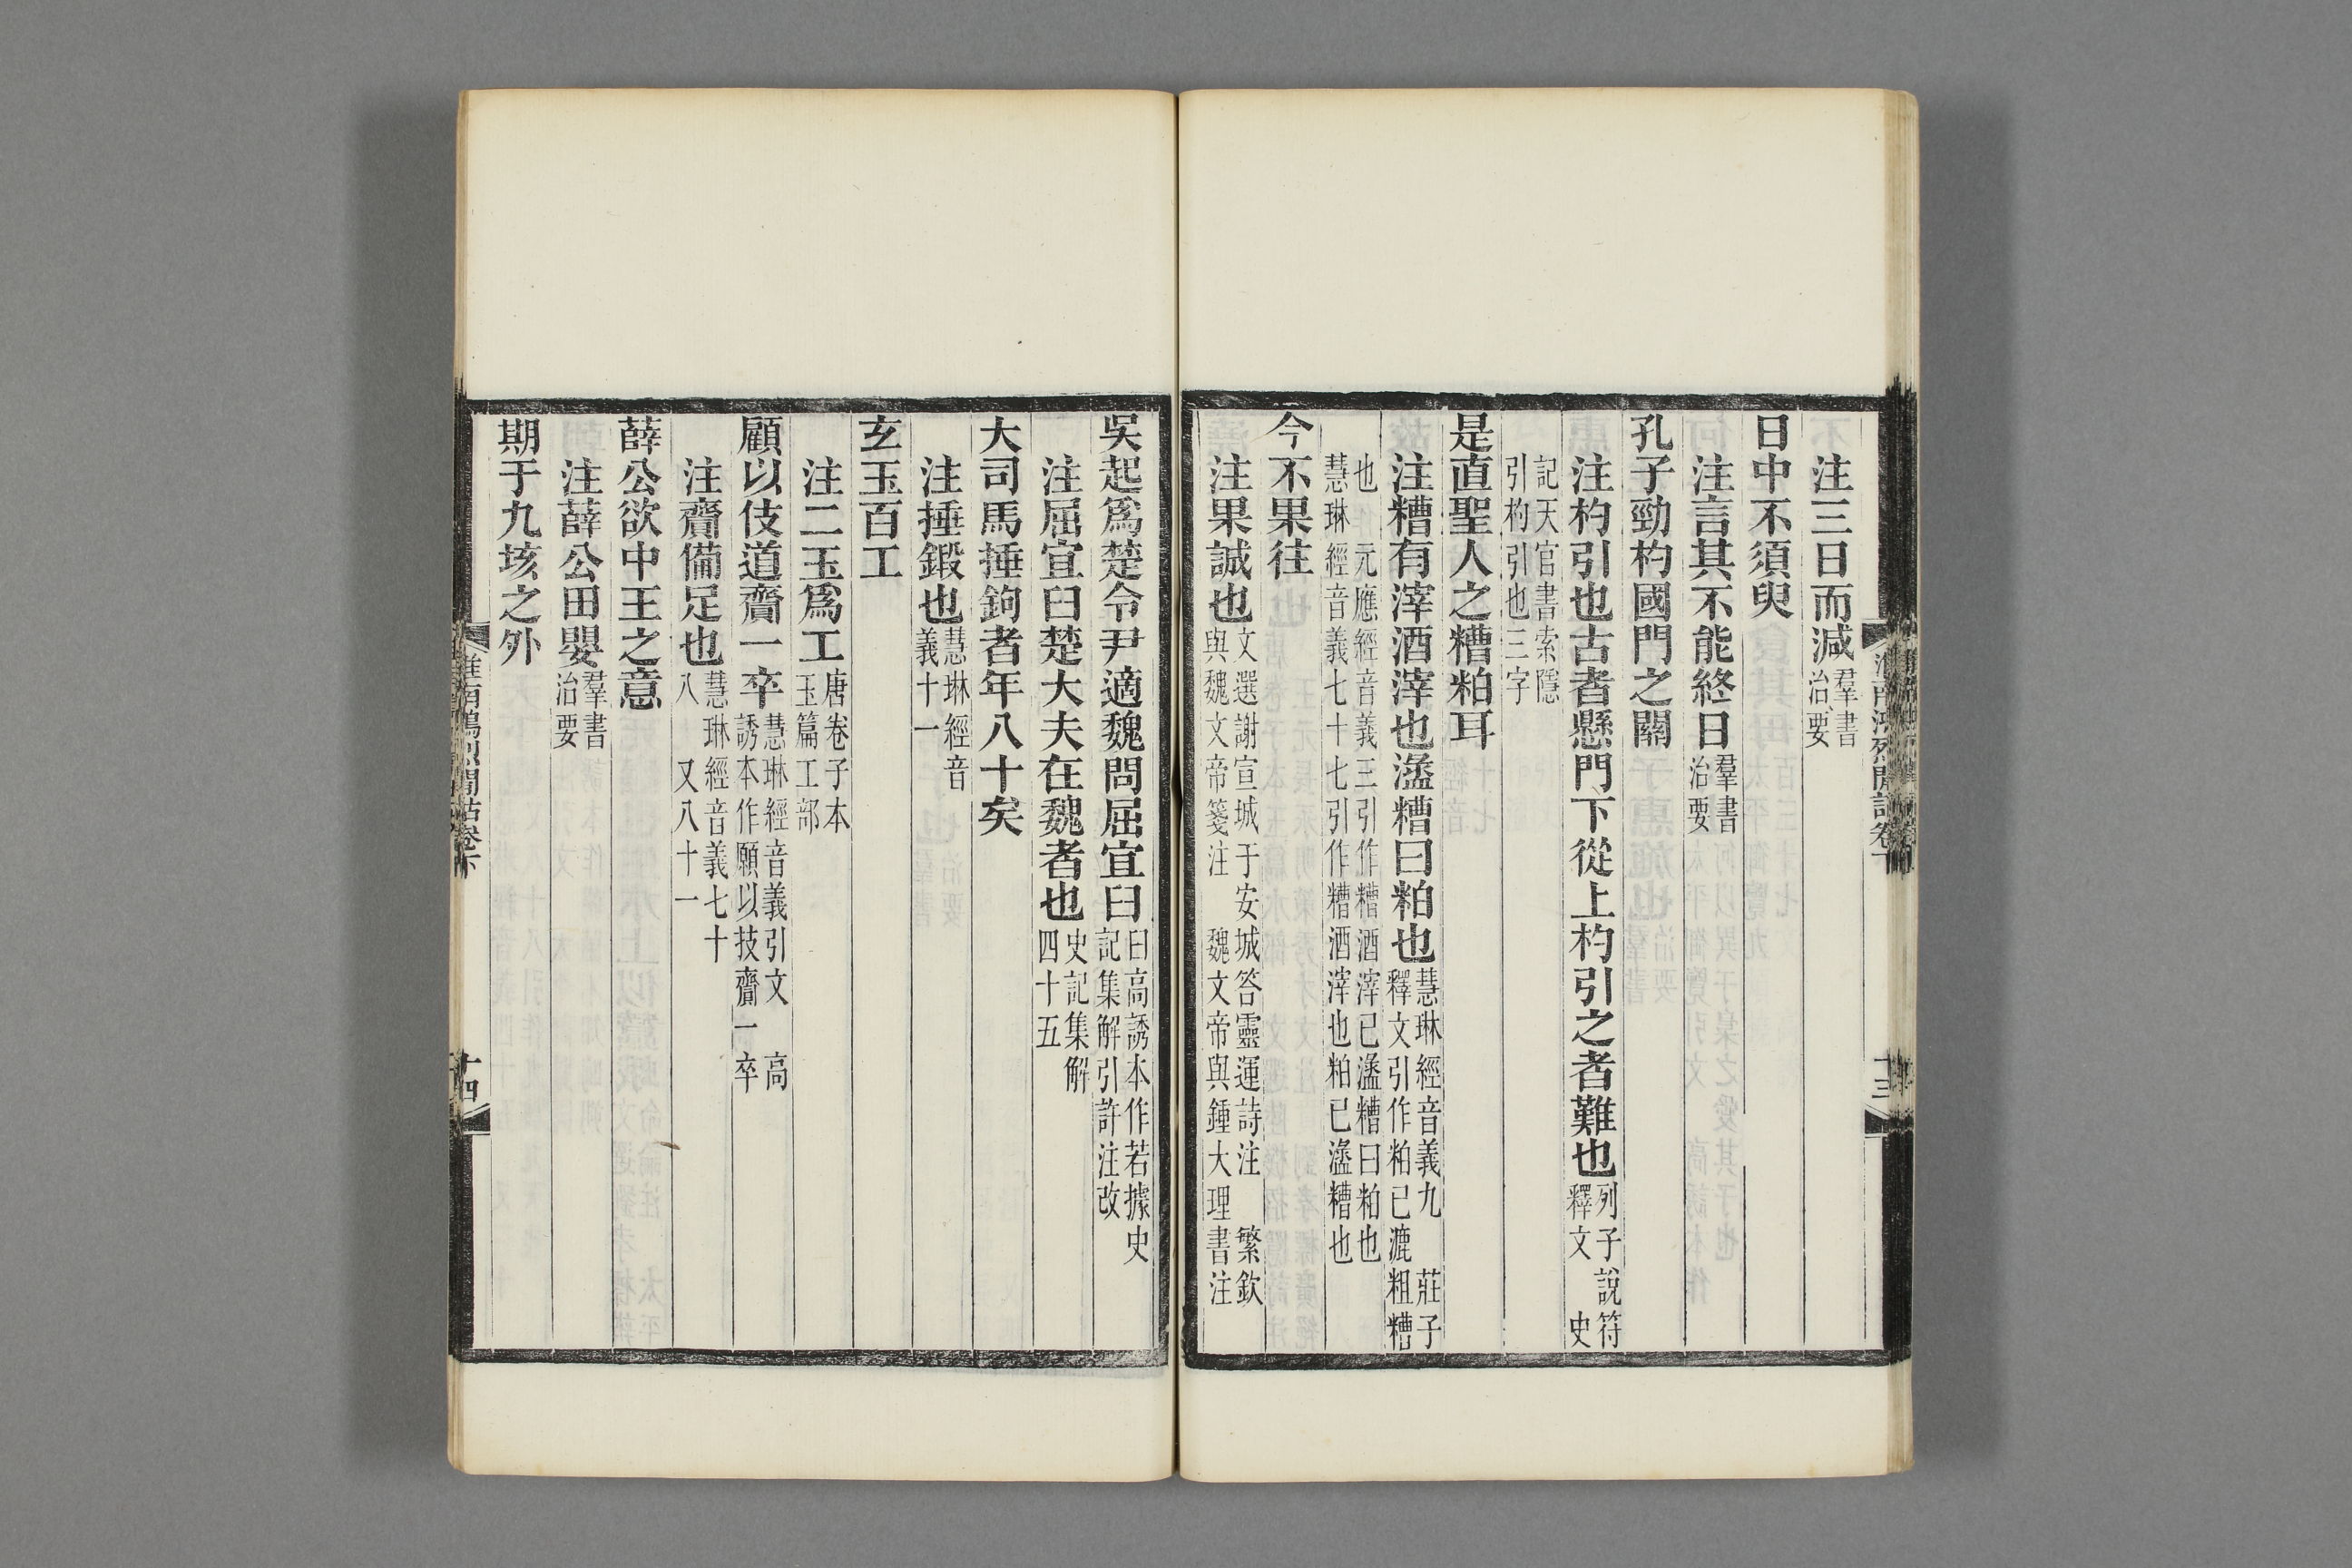 注三日而減羣書治要
日中不須臾
注言其不能終日羣書治要
孔子勁杓國門之關
注杓引也古者懸門下從上杓引之者難也列子說符釋文　史
記天官書索隱引杓引也三字
是直聖人之糟粕耳
注糟有滓酒滓也㵒糟曰粕也慧琳經音義九　莊子釋文引作粕已漉粗糟
也　元應經音義三引作糟酒滓已㵒糟曰粕也慧琳經音義七十七引作糟酒滓也粕已㵒糟也
今不果往
注果誠也文選謝宣城于安城答靈運詩注　繁欽與魏文帝箋注　魏文帝與鍾大理書注
淮南鴻烈閒詁卷下
十三
吳起爲楚令尹適魏問屈宜臼臼高誘本作若據史記集解引許注改
注屈宜臼楚大夫在魏者也史記集解四十五
大司馬捶鉤者年八十矣
注捶鍛也慧琳經音義十一
玄玉百工
注二玉爲工唐卷子本玉篇工部
顧以伎道齎一卒慧琳經音義引文　高誘本作願以技齎一卒
注齎備足也慧琳經音義七十八　又八十一
薛公欲中王之意
注薛公田嬰羣書治要
期于九垓之外
淮南鴻烈閒詁卷下
十四